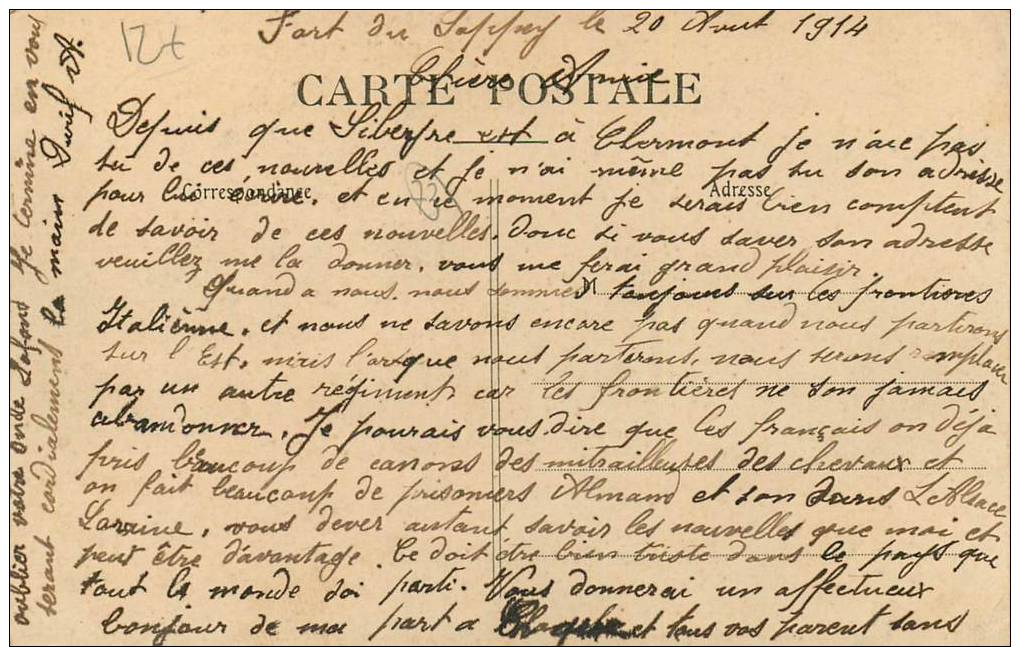 Fort du Sappey le 20 Aout 1914
Chière Amie
CARTE POSTALE
Depuis que est à Clermont je n'aie pas
eu de ces nouvelles et je n'ai même pas eu son adresse
Correspondance
Adresse
pour lui écrire, et en ce moment je serais bien comptent
de savoir de ces nouvelles. donc si vous saver son adresse
veuillez me la donner, vous me ferai grand plaisir.
Quand a nous, nous sommes toujours sur les frontieres
Italiènne, et nous ne savons encore pas quand nous partirons
sur l'Est, mais l'orsque nous partirons, nous serons remplacer
par un autre regiment car les frontières ne son jamais
abandonner. Je pourais vous dire que les français on déja
pris beaucoup de canons des mitrailleuses des chevaux et
on fait beaucoup de prisoniers Almand et son dans L'Alsace
Loraine, vous dever autant savoir les nouvelles que moi et
peut être d'avantage Ce doit être bien triste dans le pays que
tout le monde soi parti. Vous donnerai un affectueux
bonjour de ma part a et tous vos parent sans
oublier votre oncle Lafont Je termine en vous
serrant cordialement la main
12t